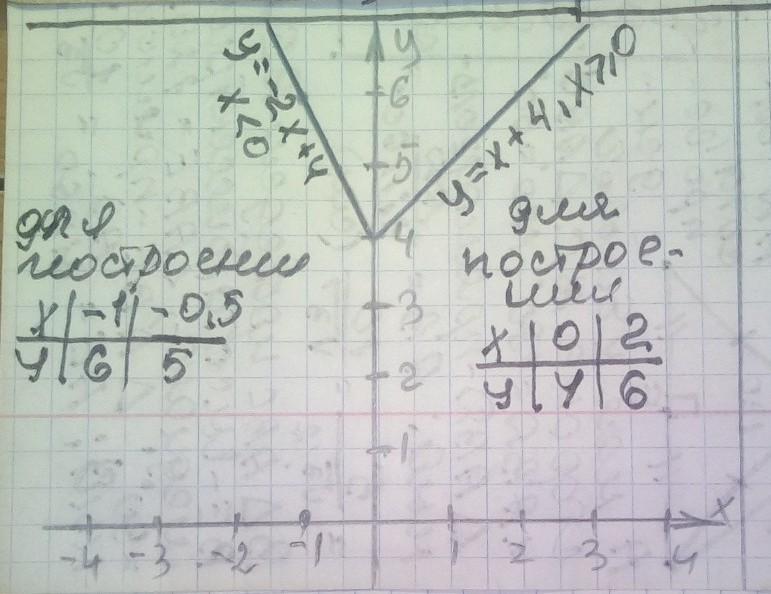 y
6
5
4
3
2
1
y=-2x+4
x<0
y=x+4, x≥0
для
построении
x | -1 | -0,5
y | 6 | 5
для
построе-
нии
x | 0 | 2
y | 4 | 6
-4 -3 -2 -1 1 2 3 4 x